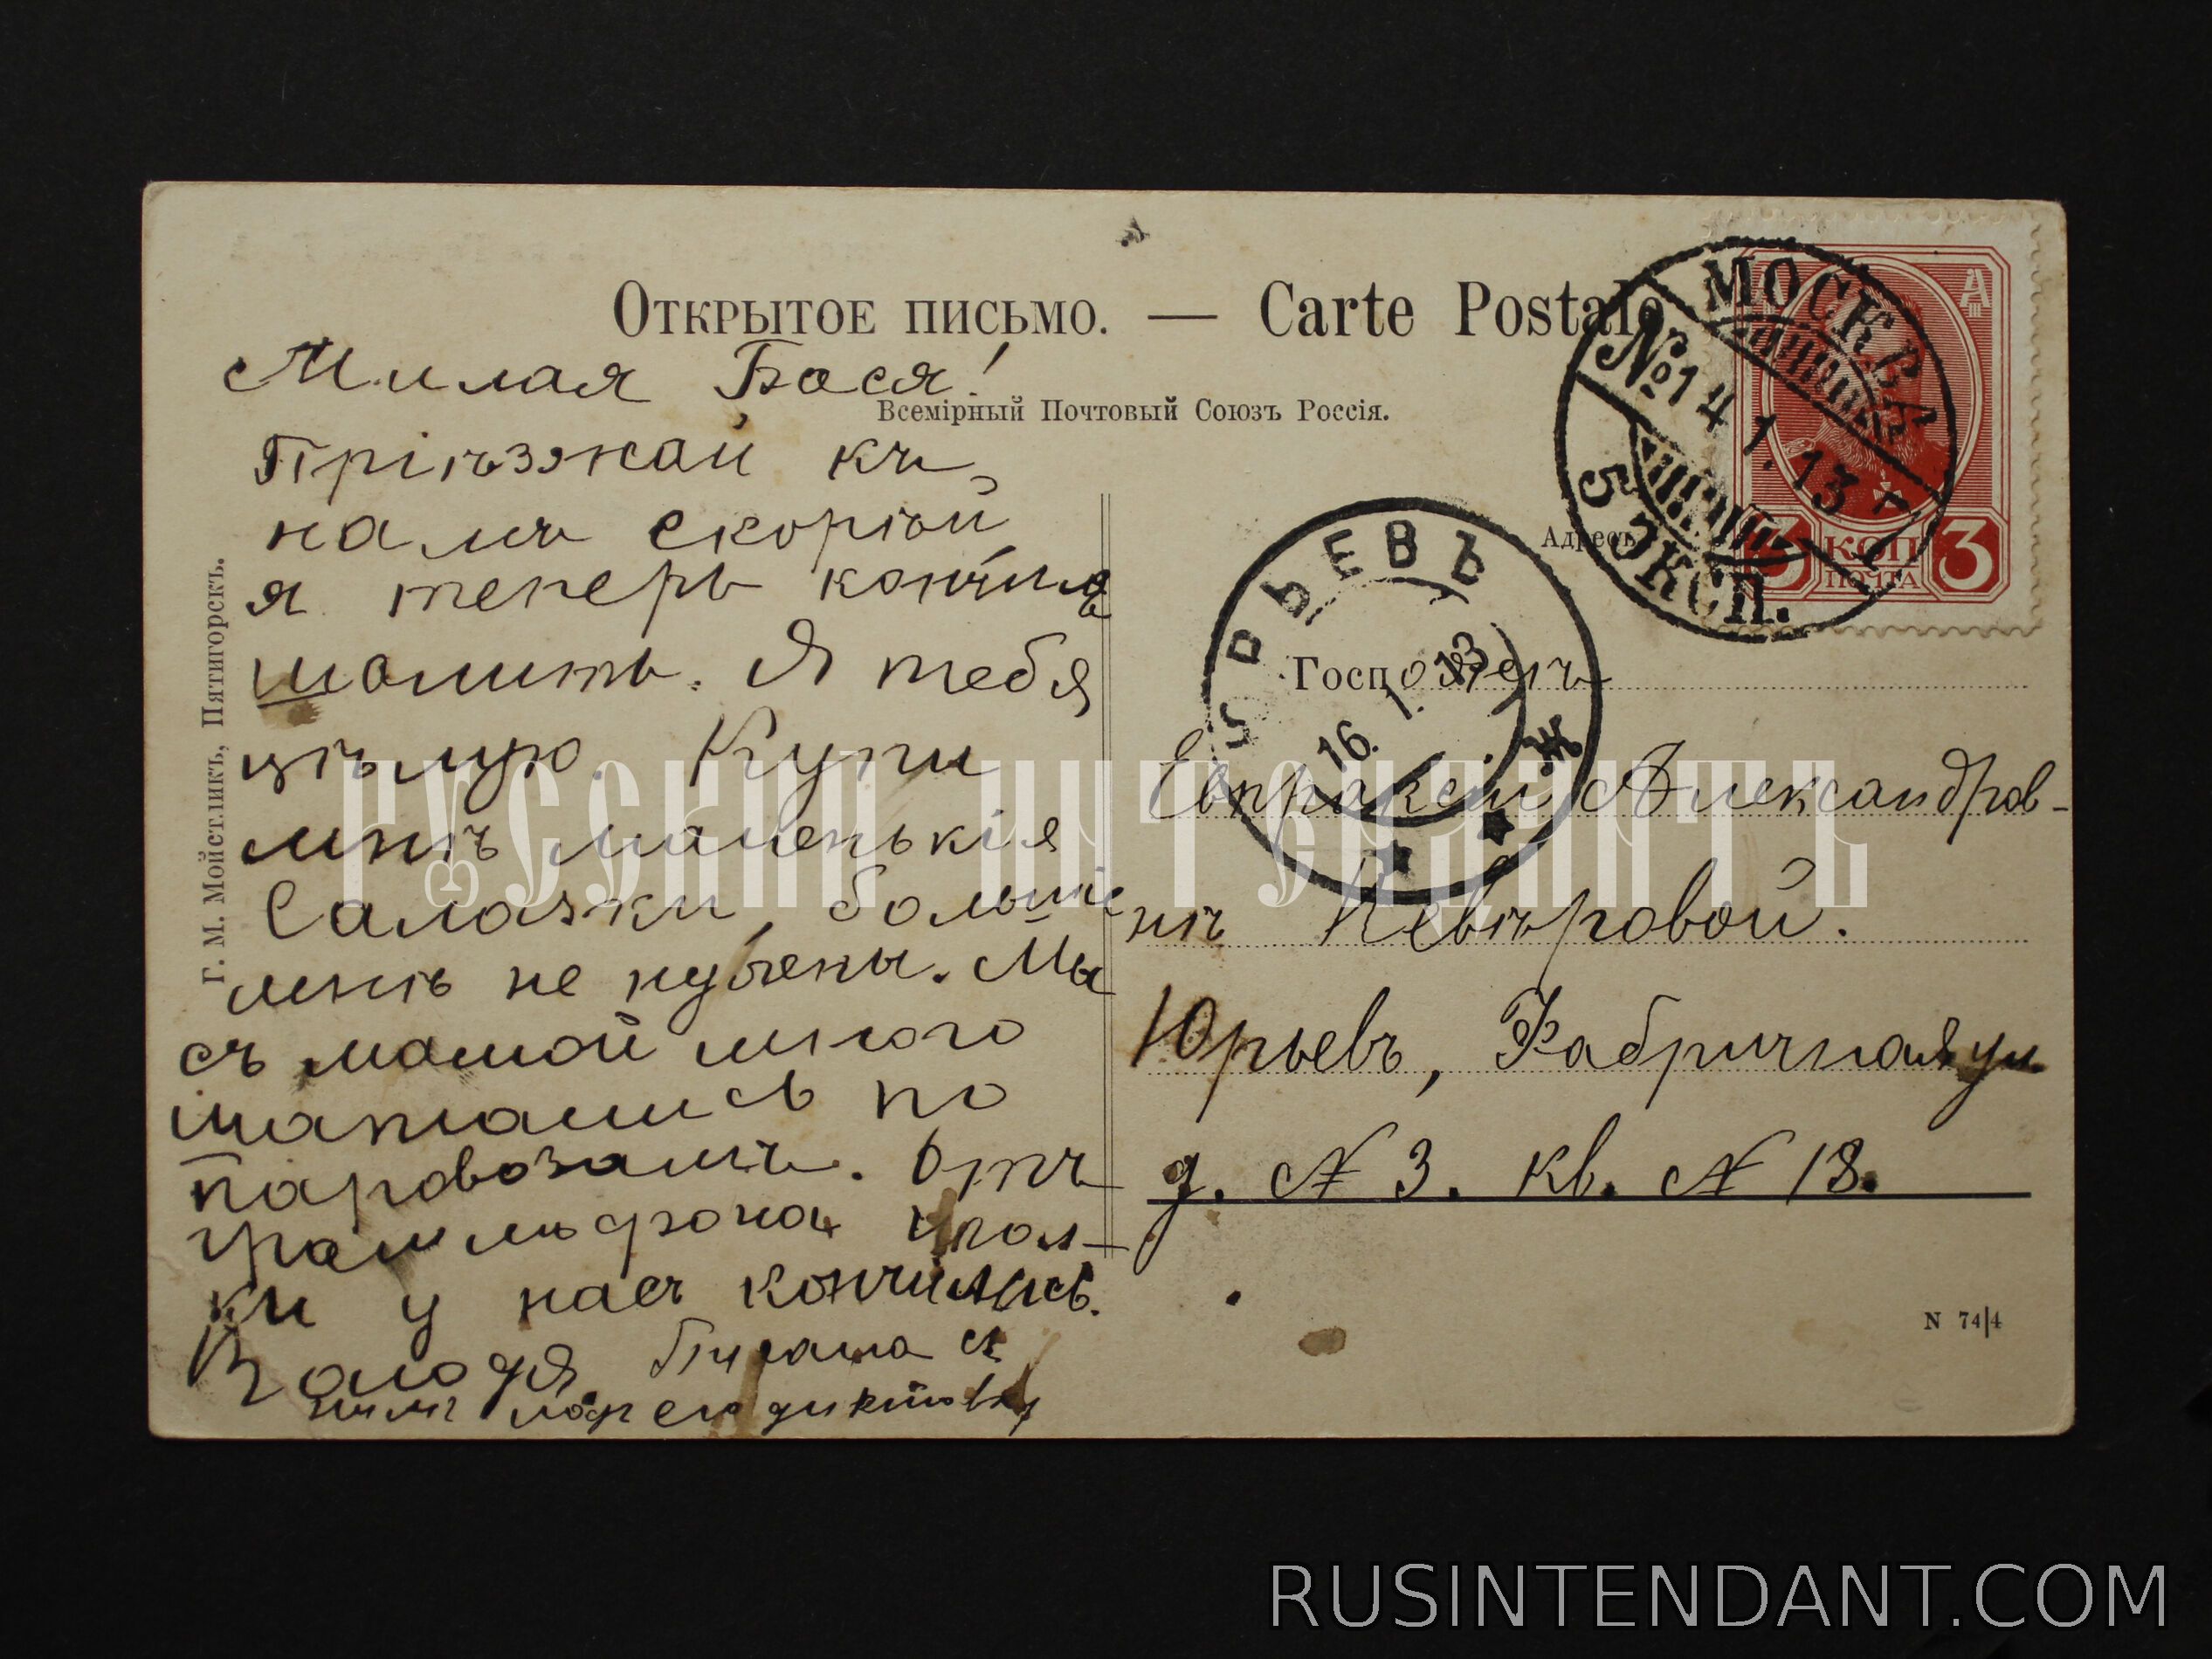 Открытое письмо. — Carte Postale
Всемірный Почтовый Союзъ Россія.
Милая Бася!
Пріѣзжай къ
намъ скорѣй
я теперь кончилъ
шалить. Я тебя
цѣлую. Купи
мнѣ маленькія
Салазки, большіе
мнѣ не нужены. Мы
съ мамой много
шатались по
паровозамъ. Отъ
граммъфона игол-
ки у насъ кончились.
Валодя. Писала съ
подъ его диктовку
Г. М. Мойстликъ, Пятигорскъ.
МОСКВА
№1 4 1. 13 г
5 ЭКСП.
КОП
ПОЧТА
3
Адресъ
ЮРЬЕВЪ
16. 1. 13
Ж
Госпожѣ
Евпраксіи Александров-
нѣ Невѣровой.
Юрьевъ, Фабричная ул
д. № 3. кв. № 18.
N 74|4
РУССКІЙ ИНТЕНДАНТЪ
RUSINTENDANT.COM